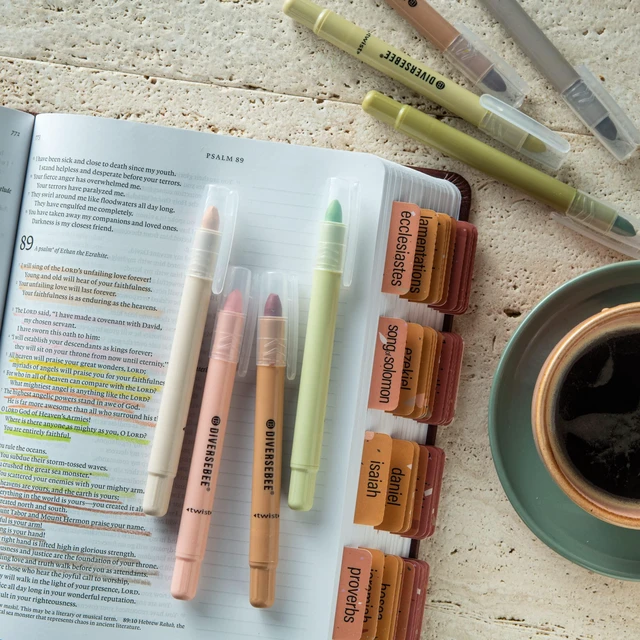 771
PSALM 89
I have been sick and close to death since my youth.
I stand helpless and desperate before your terrors.
Your fierce anger has overwhelmed me.
Your terrors have paralyzed me.
They swirl around me like floodwaters all day long.
They have engulfed me completely.
You have taken away my companions and loved ones.
Darkness is my closest friend.
89
A psalm of Ethan the Ezrahite.
I will sing of the LORD's unfailing love forever!
Young and old will hear of your faithfulness.
Your unfailing love will last forever.
Your faithfulness is as enduring as the heavens.
The LORD said, "I have made a covenant with David,
my chosen servant.
I have sworn this oath to him:
'I will establish your descendants as kings forever;
they will sit on your throne from now until eternity.'"
All heaven will praise your great wonders, LORD;
myriads of angels will praise you for your faithfulness
For who in all of heaven can compare with the LORD?
What mightiest angel is anything like the LORD?
The highest angelic powers stand in awe of God.
He is far more awesome than all who surround his
O LORD God of Heaven's Armies!
Where is there anyone as mighty as you, O LORD?
You are entirely faithful.
You rule the oceans.
You subdue their storm-tossed waves.
crushed the great sea monster.
scattered your enemies with your mighty arm.
heavens are yours, and the earth is yours;
everything in the world is yours—you created it all
created north and south.
Mount Tabor and Mount Hermon praise your name.
is your arm!
is your hand!
right hand is lifted high in glorious strength.
Righteousness and justice are the foundation of your throne.
love and truth walk before you as attendants.
those who hear the joyful call to worship,
will walk in the light of your presence, LORD.
all day long in your wonderful reputation.
in your righteousness.
This may be a literary or musical term. 89:10 Hebrew Rahab, the
sea monster that represents chaos in ancient literature.
DIVERSEBEE
twist
DIVERSEBEE
twist
DIVERSEBEE
twist
lamentations
ecclesiastes
ezekiel
song of solomon
daniel
isaiah
hosea
jeremiah
proverbs